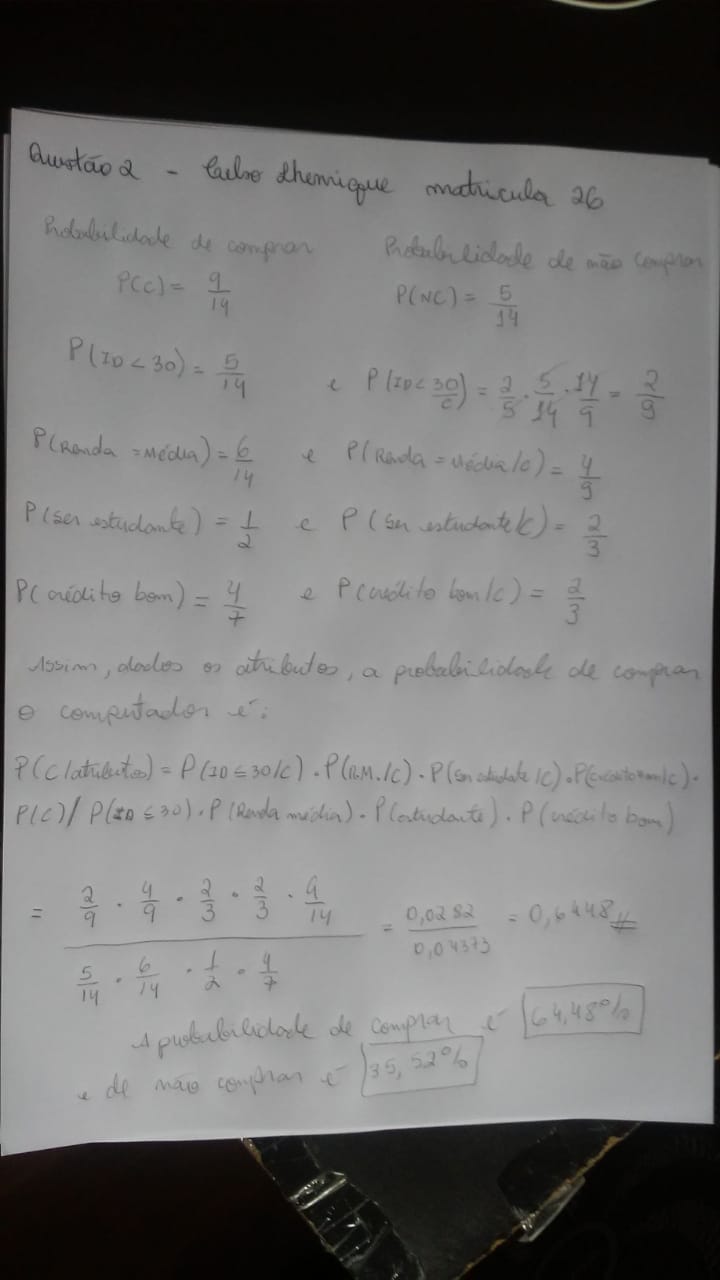 Questão 2 - Celso Lhenrique matricula 26
Probabilidade de comprar
P(C) = 9/14
Probabilidade de não comprar
P(NC) = 5/14
P(ID < 30) = 5/14 e P(ID < 30/C) = 2/5 . 5/14 . 14/9 = 2/9
P(Renda = Média) = 6/14 e P(Renda = Média/C) = 4/9
P(ser estudante) = 1/2 e P(ser estudante/C) = 2/3
P(crédito bom) = 4/7 e P(crédito bom/C) = 2/3
Assim, dados os atributos, a probabilidade de comprar
o computador é:
P(C/atributos) = P(ID ≤ 30/C) . P(R.M./C) . P(ser estudante/C) . P(crédito bom/C) .
P(C) / P(ID ≤ 30) . P(Renda média) . P(estudante) . P(crédito bom)
= (2/9 . 4/9 . 2/3 . 2/3 . 9/14) / (5/14 . 6/14 . 1/2 . 4/7) = 0,0282/0,04373 = 0,6448//
A probabilidade de comprar é 64,48%
e de não comprar é 35,52%